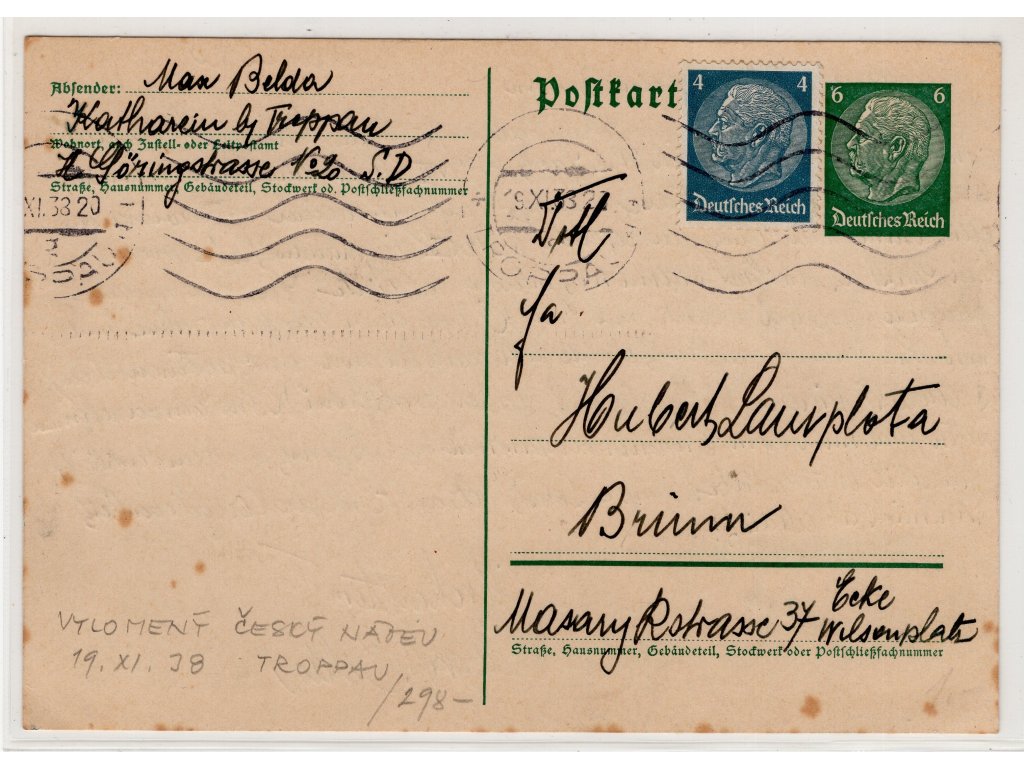 Absender: Max Belda
Katharein by Troppau
Wohnort, auch Zustell- oder Leitpostamt
H. Göringstrasse No 20 S.D
Straße, Hausnummer, Gebäudeteil, Stockwerk od. Postschließfachnummer
XI.38 20
Postkart
4 4
Deutsches Reich
6 6
Deutsches Reich
19.XI.38 20
Titl
Fa.
Hubert Lausplota
Brünn
Masarykstrasse 37 Ecke
Wilsonplatz
Straße, Hausnummer, Gebäudeteil, Stockwerk oder Postschließfachnummer
VYLOMENÝ ČESKÝ NÁZEV
19. XI. 38 TROPPAU
/298-